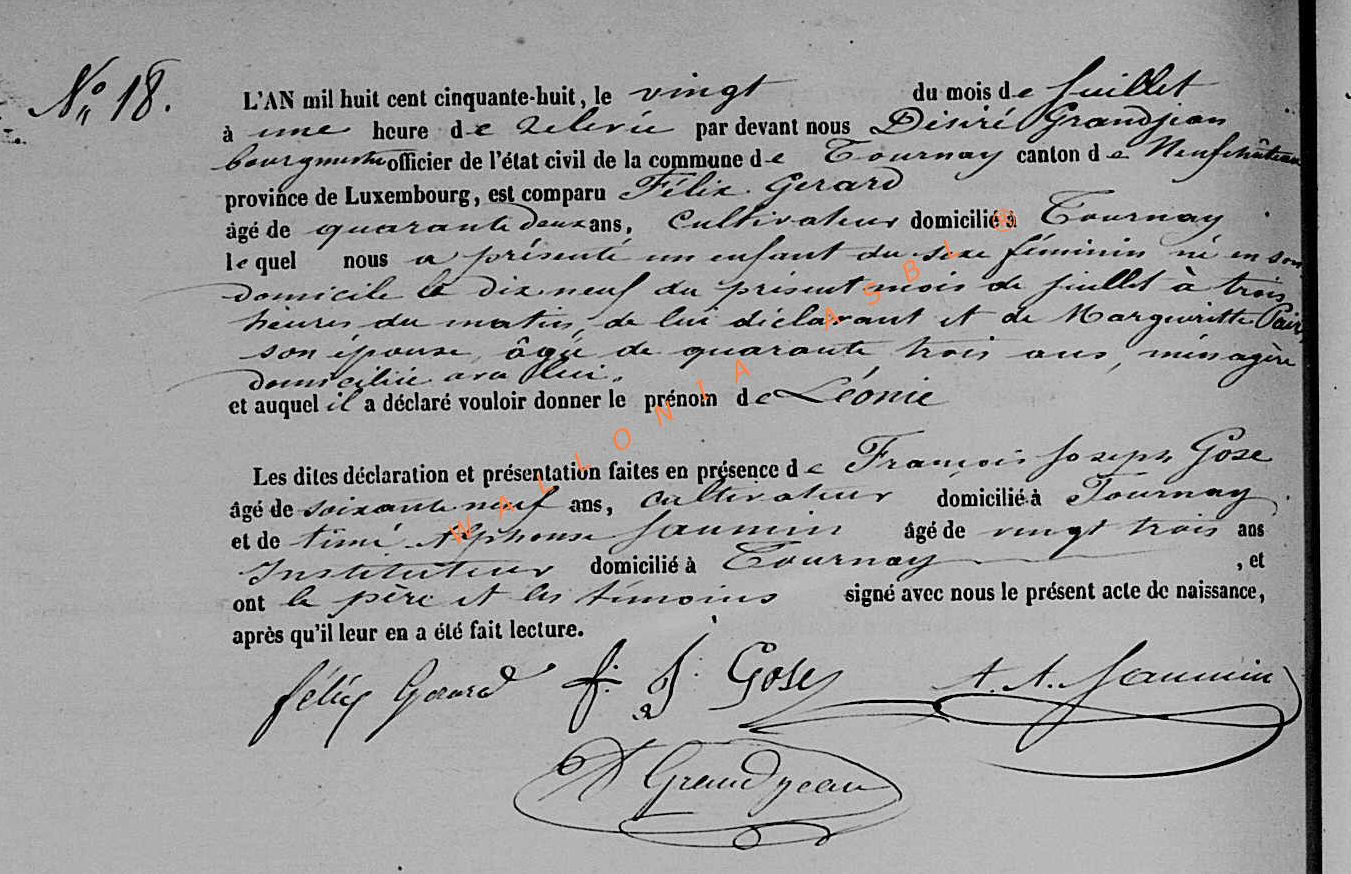 N° 18.
L'AN mil huit cent cinquante-huit, le vingt du mois de juillet
à une heure de relevée par devant nous Désiré Grandjean
bourgmestre officier de l'état civil de la commune de Tournay canton de Neufchâteau
province de Luxembourg, est comparu Félix Gerard
âgé de quarante deux ans, cultivateur domicilié à Tournay
lequel nous a présenté un enfant du sexe féminin né en son
domicile le dix neuf du présent mois de juillet à trois
heures du matin, de lui déclarant et de Margueritte
son épouse, âgée de quarante trois ans, ménagère
domiciliée avec lui.
et auquel il a déclaré vouloir donner le prénom de Léonie
Les dites déclaration et présentation faites en présence de François Joseph Gose
âgé de soixante neuf ans, cultivateur domicilié à Tournay
et de Alphonse Jaumin âgé de vingt trois ans
Instituteur domicilié à Tournay, et
ont le père et les témoins signé avec nous le présent acte de naissance,
après qu'il leur en a été fait lecture.
félix Gerard f. J. Gose A. A. Jaumin
D Grandjean
WALLONIA ASBL ®